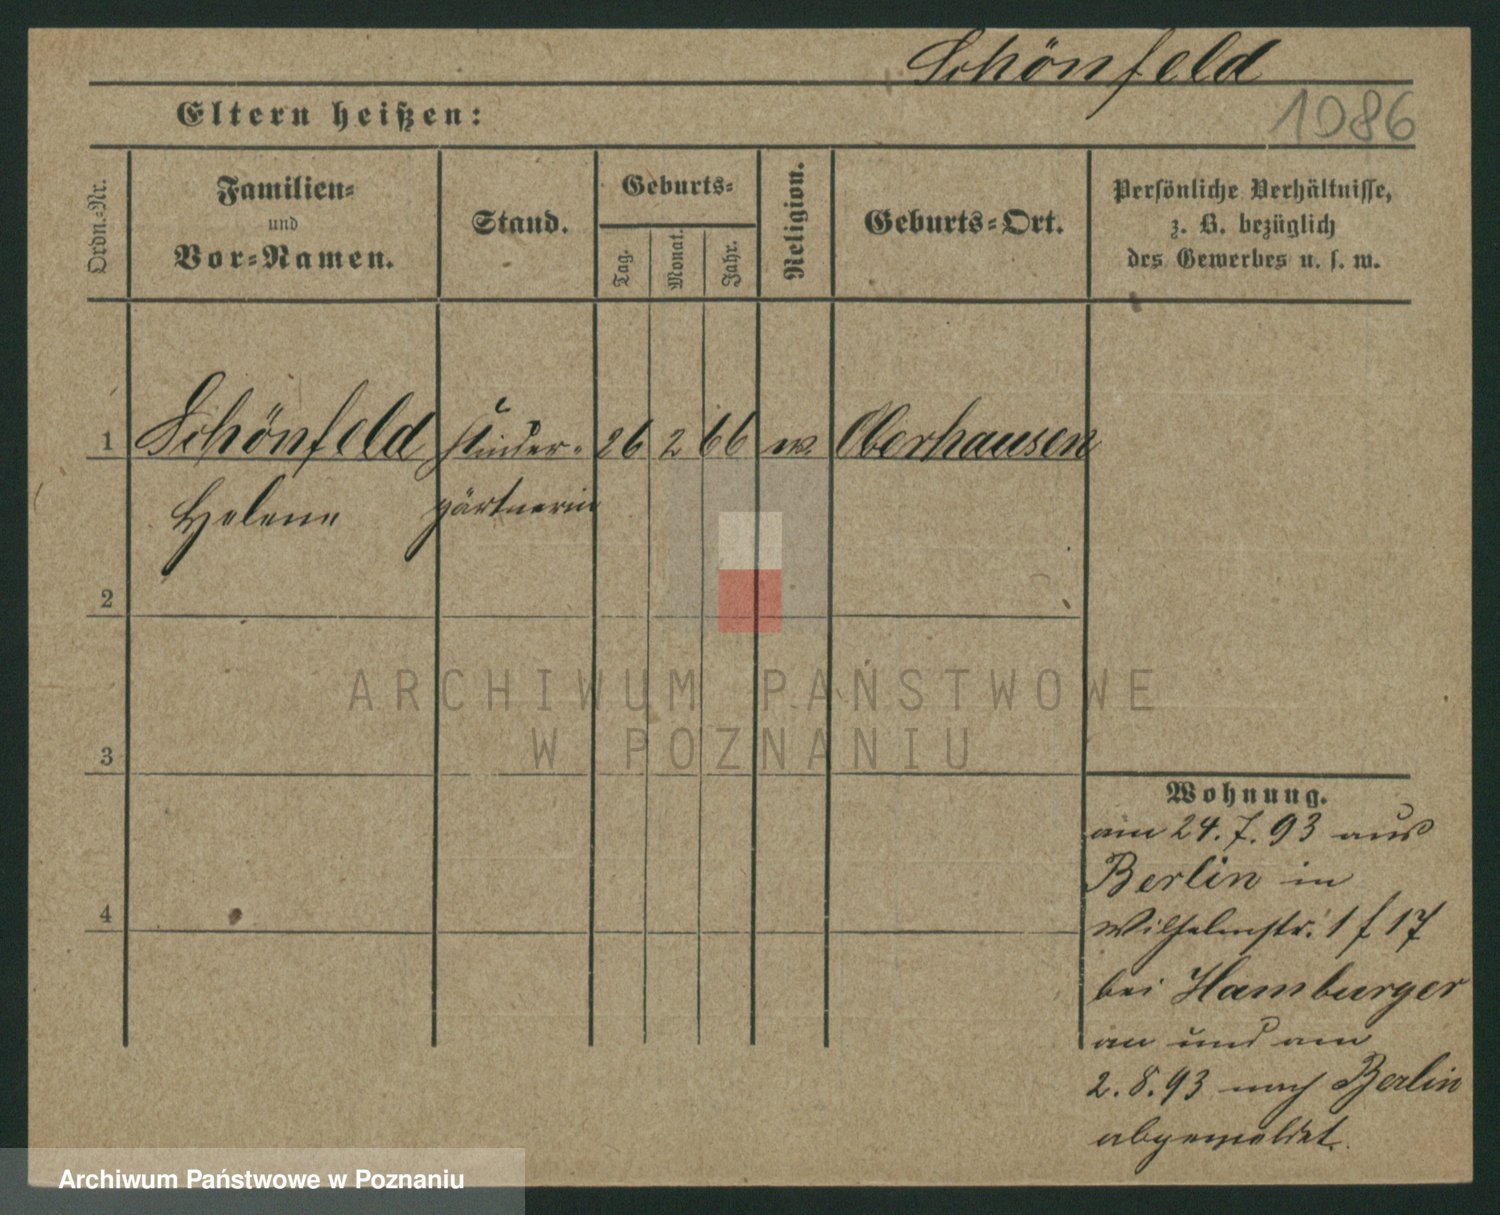 Schönfeld
1086
Eltern heißen:
Ordn.=Nr.
Familien=
und
Vor=Namen.
Stand.
Geburts=
Tag.
Monat.
Jahr.
Religion.
Geburts=Ort.
Persönliche Verhältnisse,
z. B. bezüglich
des Gewerbes u. s. w.
1 Schönfeld Kinder= 26 2 66 Oberhausen
Helene gärtnerin
2
3
4
Wohnung.
am 24.7.93 aus
Berlin in
Wilhelmstr. 1 f 17
bei Hamburger
an und am
2.8.93 nach Berlin
abgemeldet.
ARCHIWUM PAŃSTWOWE
W POZNANIU
Archiwum Państwowe w Poznaniu